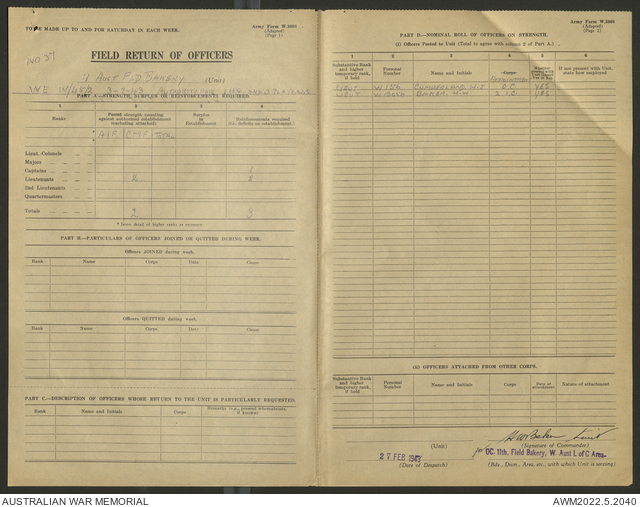 TO BE MADE UP TO AND FOR SATURDAY IN EACH WEEK.
Army Form W.3008
(Adapted)
(Page 1)
FIELD RETURN OF OFFICERS
11 AUST F.D BAKERY (Unit)
PART A.—STRENGTH, SURPLUS OR REINFORCEMENTS REQUIRED.
1 2 3 4
Ranks
Posted strength counting against authorised establishment (excluding attached)
Surplus to Establishment
Reinforcements required (for deficits on establishment).
AIF CMF TOTAL
Lieut.-Colonels
Majors
Captains 1
Lieutenants 2 2
2nd Lieutenants
Quartermasters
Totals 2 3
* Insert detail of higher ranks as necessary
PART B.—PARTICULARS OF OFFICERS JOINED OR QUITTED DURING WEEK.
Officers JOINED during week.
Rank Name Corps Date Cause
Officers QUITTED during week.
Rank Name Corps Date Cause
PART C.—DESCRIPTION OF OFFICERS WHOSE RETURN TO THE UNIT IS PARTICULARLY REQUESTED.
Rank Name and Initials Corps Remarks (e.g., present whereabouts, if known)
Army Form W.3008
(Adapted)
(Page 2)
PART D.—NOMINAL ROLL OF OFFICERS ON STRENGTH.
(i) Officers Posted to Unit (Total to agree with column 2 of Part A.)
1 2 3 4 5 6
Substantive Rank and higher temporary rank, if held
Personal Number
Name and Initials
Corps
If not present with Unit, state how employed
LIEUT O.C. YES
LIEUT BAKER, H.W. 2 I.C. YES
(ii) OFFICERS ATTACHED FROM OTHER CORPS.
Substantive Rank and higher temporary rank, if held
Personal Number
Name and Initials
Corps
Date of attachment
Nature of attachment
HW Baker Lieut
(Unit) (Signature of Commander)
27 FEB 1943 for OC. 11th. Field Bakery, W. Aust L of C Area.
(Date of Despatch) (Bde., Divn., Area, etc., with which Unit is serving)
AUSTRALIAN WAR MEMORIAL AWM2022.5.2040